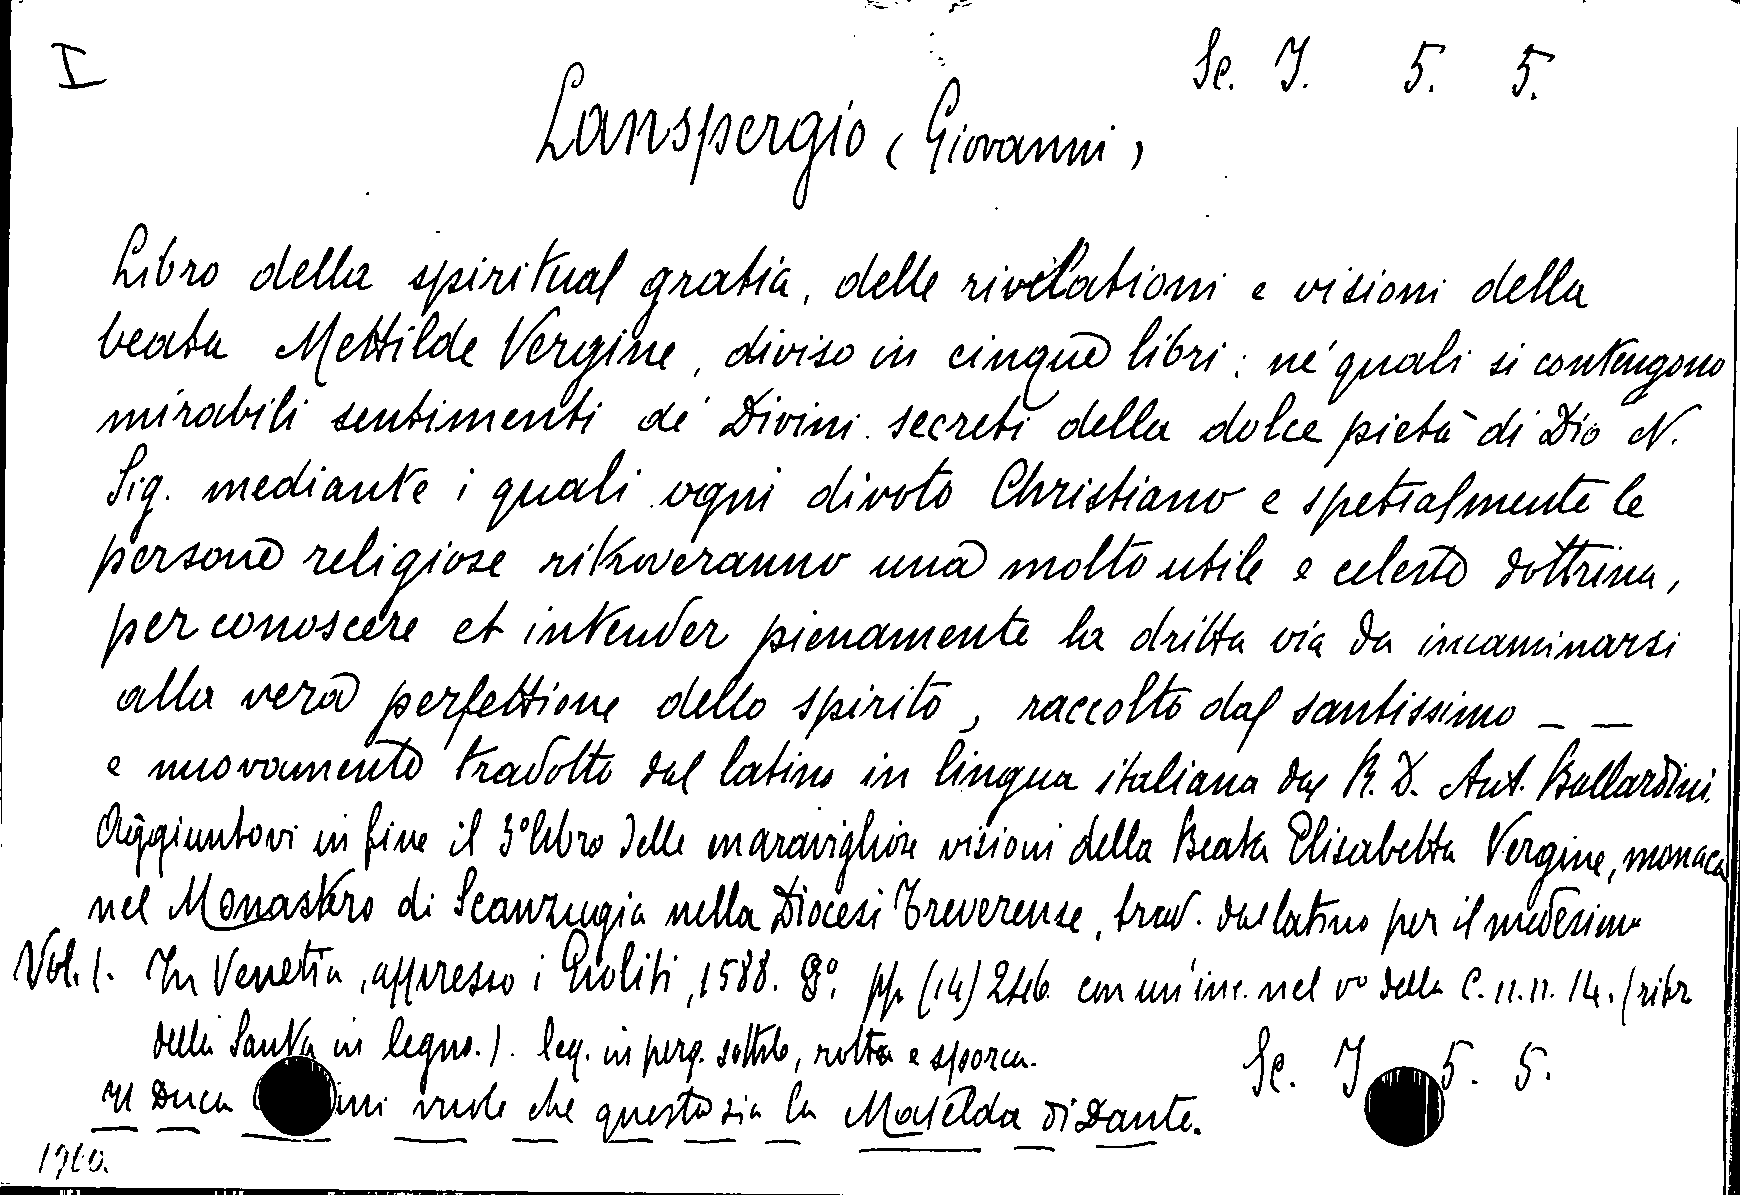 I
Sc. I. 5. 5.
Lanspergio (Giovanni)
Libro della spiritual gratia, delle rivelationi e visioni della
beata Mettilde Vergine, diviso in cinque libri: ne' quali si contengono
mirabili sentimenti de' Divini secreti della dolce pietà di Dio N.
Sig. mediante i quali ogni divoto Christiano e spetialmente le
persone religiose ritroveranno una molto utile e celeste dottrina,
per conoscere et intender pienamente la dritta via da incaminarsi
alla vera perfettione dello spirito, raccolto dal santissimo _ _
e nuovamente tradotto dal latino in lingua italiana dal R. D. Ant. Ballardini.
Aggiuntovi in fine il 3º libro delle maravigliose visioni della Beata Elisabetta Vergine, monaca
nel Monastero di Scanzugia nella Diocesi Treverense, trad. dal latino per il medesimo
Vol. 1. In Venetia, appresso i Gioliti, 1588. 8º. pp. (14) 246 con un'inc. nel vº della C. n.n. 14. (ritr.
della Santa in legno.). leg. in perg. sottile, rotta e sporca.
Sc. I 5. 5.
Il Duca vuole che questa sia la Matelda di Dante.
1960.